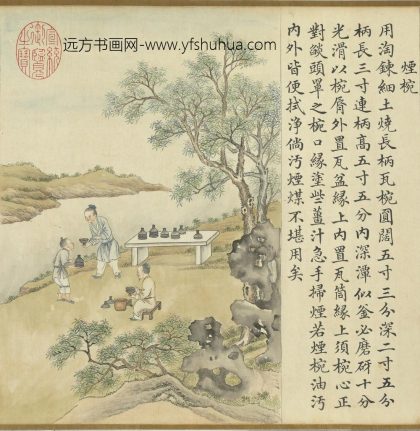 远方书画网-www.yfshuhua.com
煙椀
用淘鍊細土燒長柄瓦椀圓闊五寸三分深二寸五分
柄長三寸連柄高五寸五分內深潭似釜必磨砑十分
光滑以椀脣外置瓦盆緣上內置瓦筒緣上須椀心正
對燄頭罩之椀口緣塗些薑汁急手掃煙若煙椀油汚
內外皆便拭淨倘汚煙煤不堪用矣